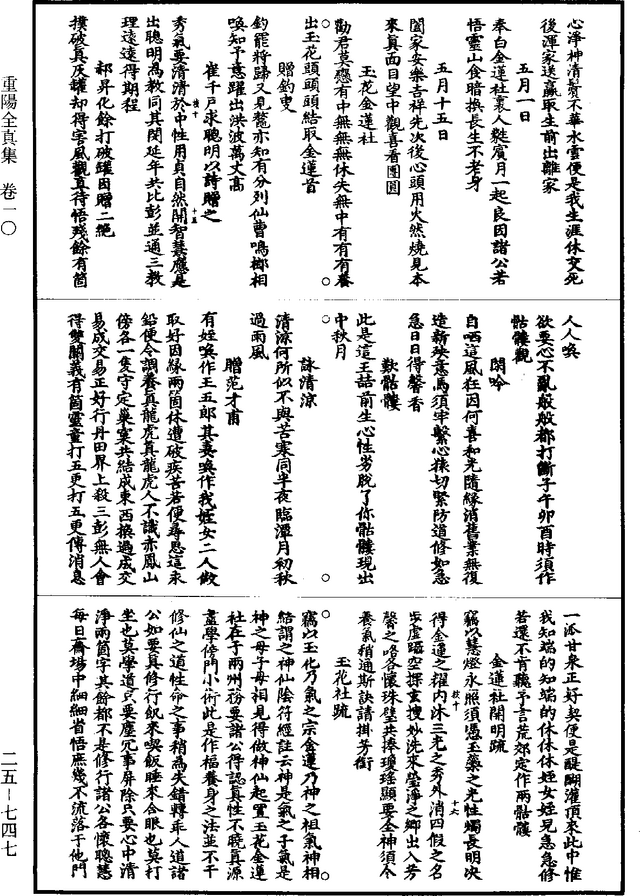 重陽全真集 卷一〇
二五—七四七
心淨神清鬂不華水雲便是我生涯休交死
後渾家送贏取生前出離家
五月一日
奉白金蓮社裏人甦賡月一起良因諸公若
悟靈山食暗換長生不老身
五月十五日
闔家安樂吉祥先次後心頭用火然燒見本
來真面目望中觀喜看團圓
玉花金蓮社
勸君莫戀有中無無無休失無中有有有養
出玉花頭頭頭結取金蓮首
贈釣叟
釣罷將歸又見鰲亦知有分列仙曹鳴榔相
喚知予意躍出洪波萬丈高
崔千戶求聰明以詩贈之
秀氣要清清於中性用貞自然開智慧應是
出聰明為教同其閔延年共比彭並通三教
理遠遠得期程
郝昇化餘打破罐因贈二絕
撲破真灰罐却得害風觀直待悟殘餘有箇
人人喚
欲要心不亂般般都打斷子午卯酉時須作
骷髏觀
閑吟
自哂這風狂因何喜和光隨緣消舊業無復
造新殃意馬須牢繫心猿切緊防道修如急
急日日得馨香
歎骷髏
此是這王喆前生心性劣脫了你骷髏現出
中秋月
詠清涼
清涼何所似不與苦寒同半夜臨潭月初秋
過雨風
贈范才甫
有姪喚作王五郎其妻喚作我姪女二人做
取好因緣兩箇休遭破疾苦若便尋思這永
鉛使令調養真龍虎真龍虎人不識赤鳳山
傍各一隻守定巢窠共結成東西換過成交
易成交易正好行丹田界上殺三彭無人會
得雙關義有箇靈童打五更打五更傳消息
一泒甘泉正好契便是醍醐灌頂來此中惟
我知端的知端的休休休姪女姪兒急急修
若還不肯聽予言荒郊定作兩骷髏
金蓮社開明疏
竊以慧燈永照須憑玉藥之光性燭長明決
得金蓮之耀内沐三光之秀外消四假之名
步虛躡空探玄搜妙洗來瑩淨之鄉出入芳
馨之咯各懷珠璧共捧瓊瑤顯要全神須今
養氣稍通斯訣請掛芳銜
玉花社疏
竊以玉化乃氣之宗金蓮乃神之祖氣神相
結謂之神仙陰符經註云神是氣之子氣是
神之母子母相見得做神仙起置玉花金蓮
社在于兩州務要諸公得認真性不曉真源
盡學傍門小術此是作福養身之法並不干
修仙之道性命之事稍為失錯轉乖人道諸
公如要真修行飯來喫飯睡來合眼也莫打
坐也莫學道只要塵冗事屏除只要心中清
淨兩箇字其餘都不是修行諸公各懷聰慧
每日齋場中細細省悟庶幾不流落于他門